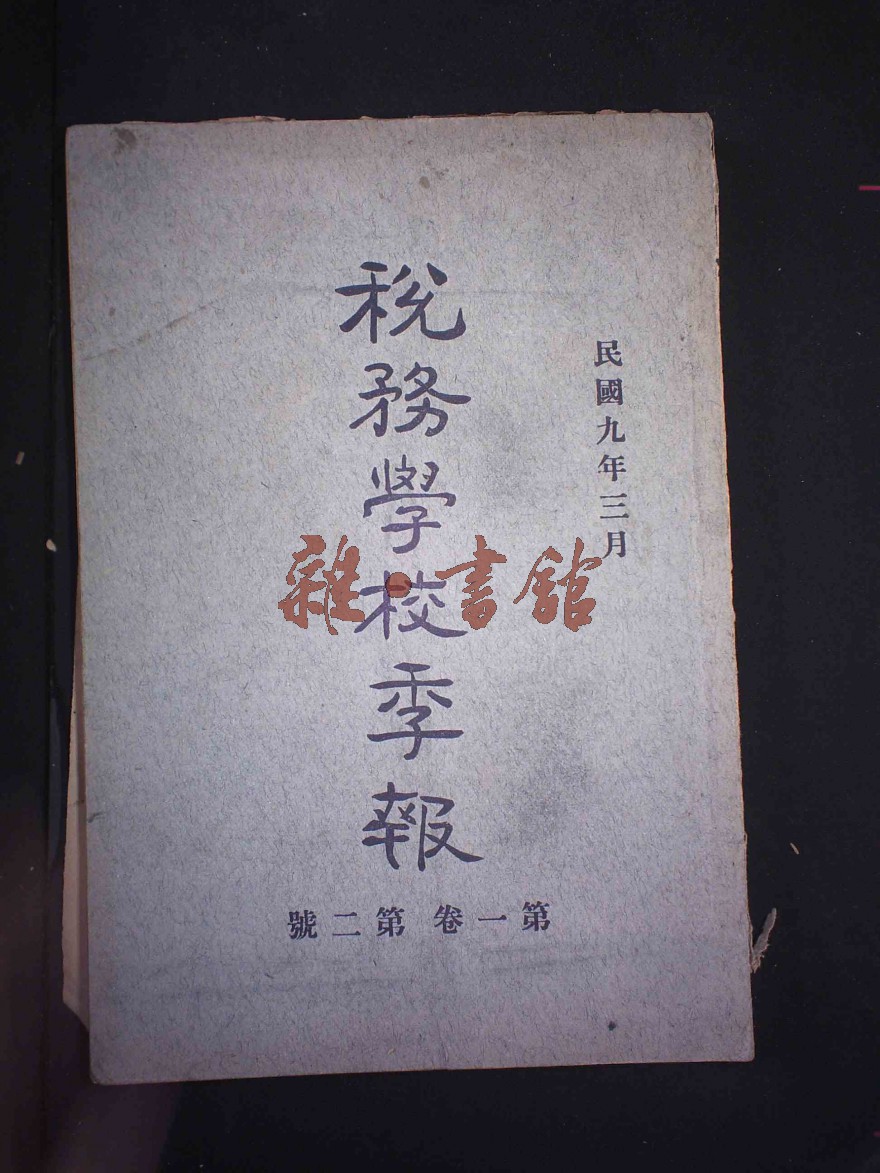 民國九年三月
稅務學校季報
第一卷 第二號
雜·書館